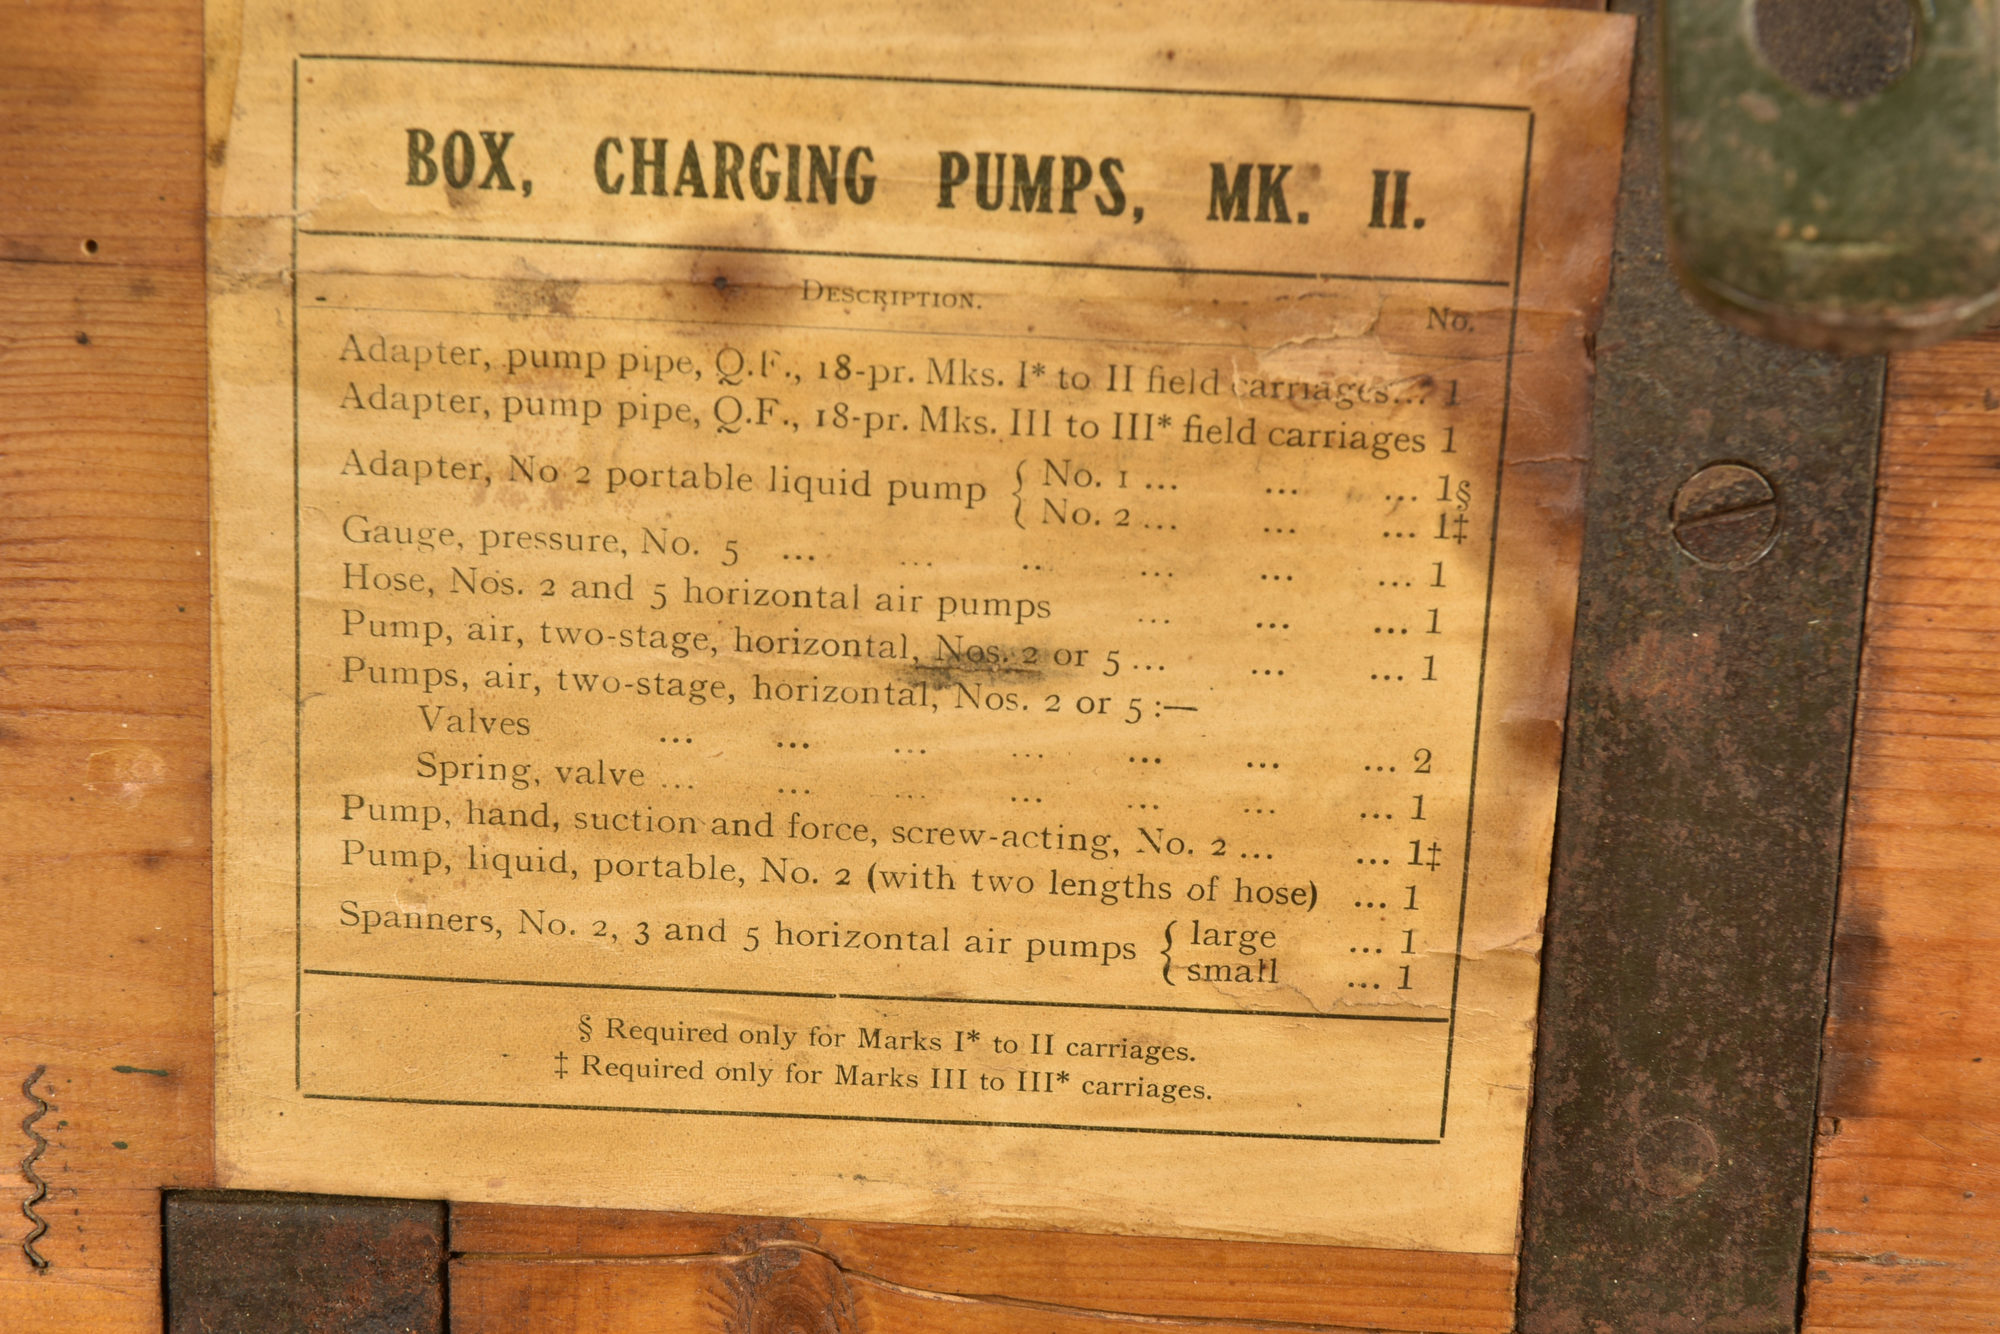 BOX, CHARGING PUMPS, MK. II.
DESCRIPTION. No.
Adapter, pump pipe, Q.F., 18-pr. Mks. I* to II field carriages... 1
Adapter, pump pipe, Q.F., 18-pr. Mks. III to III* field carriages 1
Adapter, No 2 portable liquid pump { No. 1 ... ... ... 1§
{ No. 2 ... ... ... 1‡
Gauge, pressure, No. 5 ... ... ... ... ... ... 1
Hose, Nos. 2 and 5 horizontal air pumps ... ... ... 1
Pump, air, two-stage, horizontal, Nos. 2 or 5 ... ... ... 1
Pumps, air, two-stage, horizontal, Nos. 2 or 5 :—
Valves ... ... ... ... ... ... ... 2
Spring, valve ... ... ... ... ... ... ... 1
Pump, hand, suction and force, screw-acting, No. 2 ... ... 1‡
Pump, liquid, portable, No. 2 (with two lengths of hose) ... 1
Spanners, No. 2, 3 and 5 horizontal air pumps { large ... 1
{ small ... 1
§ Required only for Marks I* to II carriages.
‡ Required only for Marks III to III* carriages.